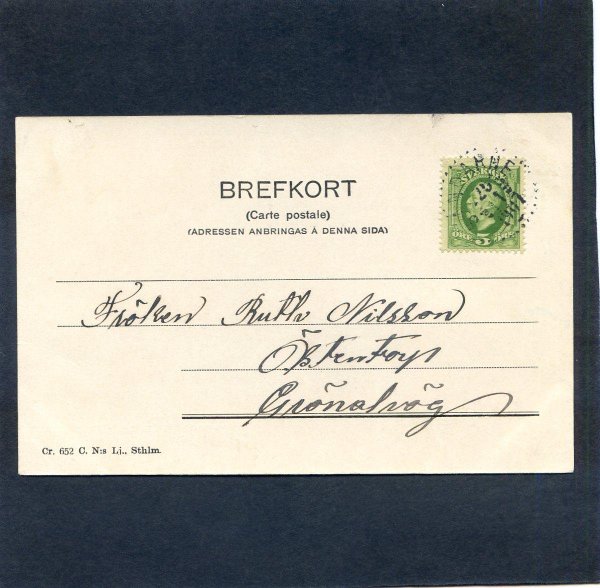 BREFKORT
(Carte postale)
(ADRESSEN ANBRINGAS Å DENNA SIDA)
Fröken Ruth Nilsson
Östentorp
Grönalvög
Cr. 652 C. N:s Lj., Sthlm.